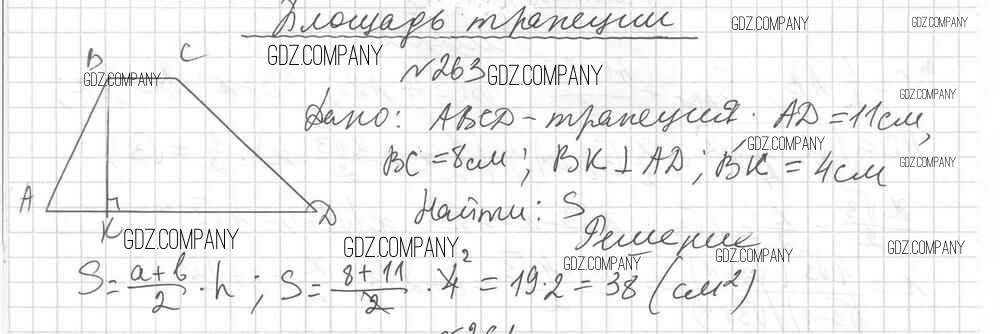 Площадь трапеции
GDZ.COMPANY
GDZ.COMPANY
GDZ.COMPANY
№263 GDZ.COMPANY
B C
GDZ.COMPANY
GDZ.COMPANY
Дано: ABCD - трапеция. AD = 11 см,
GDZ.COMPANY
BC = 8 см; BK ⊥ AD; BK = 4 см
GDZ.COMPANY
A K D
Найти: S
GDZ.COMPANY
Решение
GDZ.COMPANY
GDZ.COMPANY
GDZ.COMPANY
GDZ.COMPANY
S = (a+b)/2 · h; S = (8+11)/2 · 4² = 19·2 = 38 (см²)